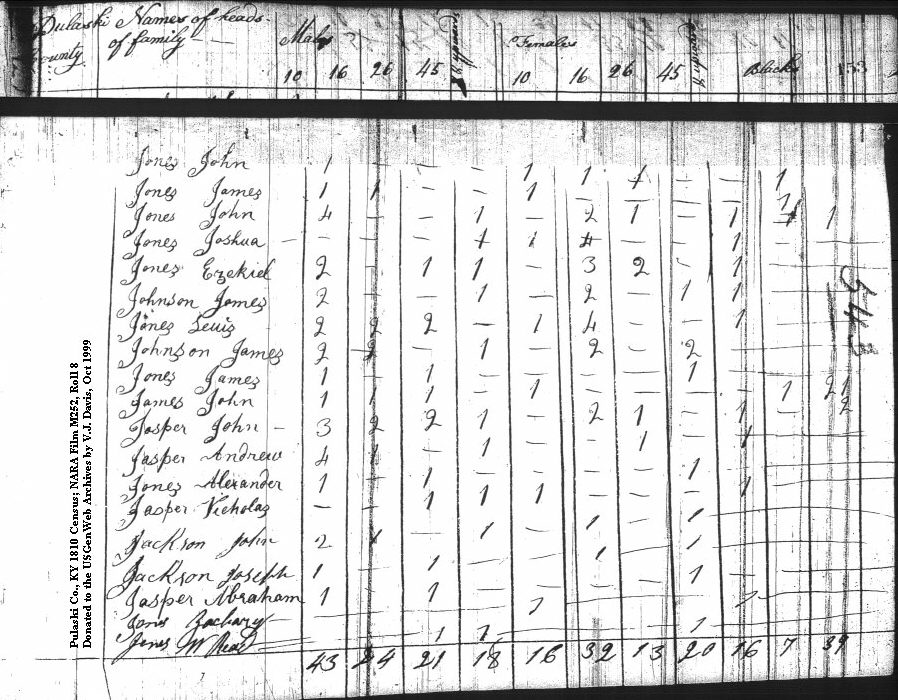 Pulaski Names of heads
County of family — Males Females
10 16 26 45 10 16 26 45 Blacks 153
Jones John 1 — — — 1 1 1 — — 1
Jones James 1 1 — — 1 — — — — 1
Jones John 4 — — 1 — 2 1 — 1 1 1
Jones Joshua — — — — 1 1 4 — — — 1
Jones Ezekiel 2 1 1 — 3 2 — 1
Johnson James 2 — — 1 — 2 — 1 1
Jones Lewis 2 2 2 — 1 4 — — 1
Johnson James 2 2 — 1 — 2 — 2
Jones James 1 — 1 — — — — 1
James John 1 1 1 — 1 — — — — 1 21
Jasper John — 3 2 2 1 — 2 1 — 1 2
Jasper Andrew 4 1 — 1 — — 1 — 1
Jones Alexander 1 — 1 — — — — 1 1
Jasper Nicholas — — 1 1 1 — — —
Jackson John 2 1 — 1 — 1 — 1
Jackson Joseph 1 — 1 — — 1 — 1
Jasper Abraham 1 — 1 — — — — 1
Jones Zachary
Jones W
43 24 21 18 16 32 13 20 16 7 39
543
Pulaski Co., KY 1810 Census; NARA Film M252, Roll 8
Donated to the USGenWeb Archives by V.J. Davis, Oct 1999